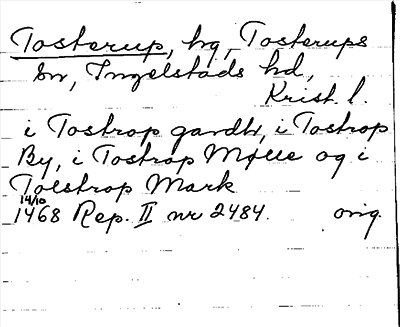 Tosterup, hg, Tosterups
sn, Ingelstads hd,
Krist. l.
i Tostrop gardh, i Tostrop
By, i Tostrop Mølle og i
Tolstrop Mark
14/10
1468 Rep. II nr 2484. orig.